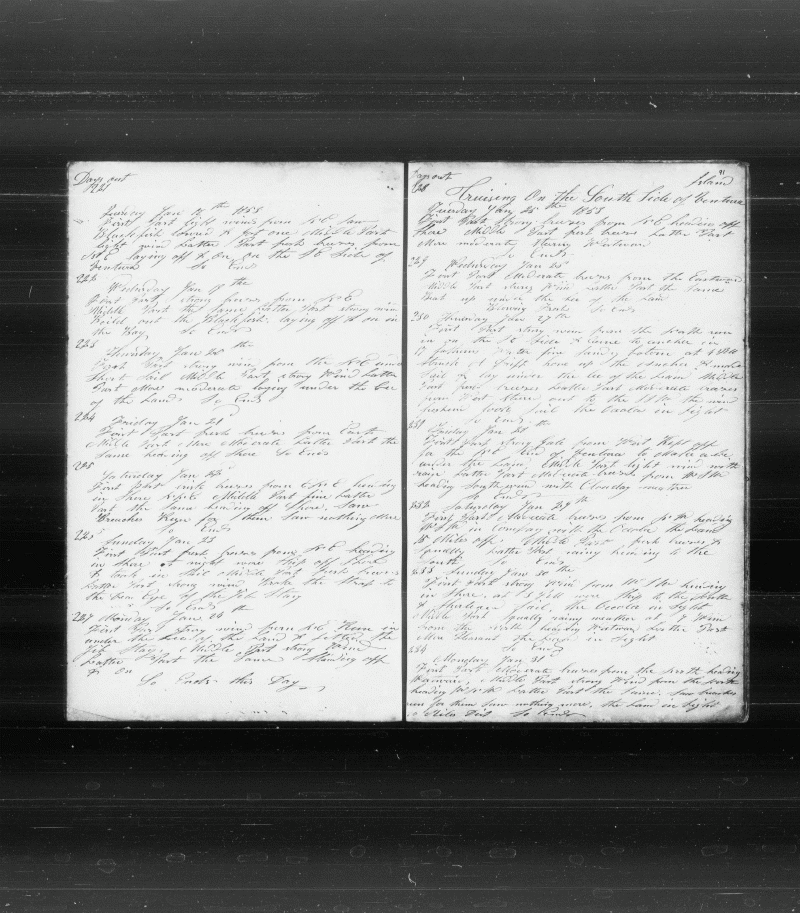 Days out
1221
Tuesday Jan 18th 1853
First Part light winds from N E Saw
Blackfish lowered & got one Middle Part
light wind Latter Part fresh breeze from
N E laying off & on on the S E Side of
Ventura So Ends
222
Wednesday Jan 19 the
First Part strong breeze from N E
Middle Part the Same Latter Part strong wind
Boiled out the Blackfish laying off & on in
the Bay So Ends
223
Thursday Jan 20 the
First Part strong wind from the N E
Middle Part strong Wind Latter
Part More moderate laying under the Lee
of the Land So Ends
224
Friday Jan 21
First Part fresh breeze from East
Middle Part More Moderate Latter Part the
Same heading off Shore So Ends
225
Saturday Jan 22
First Part breeze from E N E heading
in Shore Middle Part fine Latter
Part the Same heading off Shore. Saw
Breaches for them Saw nothing More
So Ends
226
Sunday Jan 23
First Part fresh breeze from N E heading
in shore at night wore Ship off Shore
& took in Sail Middle Part fresh breeze
Latter Part strong wind Broke the Strap to
the of the Jib Stay
So Ends
227 Monday Jan 24
First Part strong wind from N E Went in
under the Lee of the Land & fitted the
Jib Stay, Middle Part strong Wind
Latter Part the Same Standing off
& On
So Ends this Day
Days out
228
91
Island
Cruising On the South Side of Ventura
Tuesday Jan 25 the 1853
First Part strong breeze from N E heading off
Shore Middle Part fresh breeze Latter Part
More moderate
So Ends
229
Wednesday Jan 26
First Part Moderate breeze from the Eastward
Middle Part strong Wind Latter Part the Same
Beat up under the Lee of the Land
So Ends
230 Thursday Jan 27 th
First Part strong wind from the North
in on the S E Side & Came to anchor in
17 fathoms Water fine Sandy bottom at 4
hove up the anchor & made
Sail & lay under the lee of the Land Middle
Part fresh breeze Latter Part Moderate breeze
from West Steering out to the S S W the wind
freshend took Sail the Ocola in Sight
So Ends
231
Friday Jan 28 the
First Part strong Gale from West Kept off
for the S E End of Ventura to Make a Lee
under the Land, Middle Part light wind with
rain Latter Part Moderate breeze from W S W
heading South wind with Cloudy weather
So Ends
232 Saturday Jan 29 th
First Part Moderate breeze from S W heading
W N W in Company with the Ocola the Land
15 Miles off. Middle Part fresh breeze &
Squally Latter Part rainy heading to the
South So Ends
233 Sunday Jan 30 the
First Part strong Wind from W S W heading
in Shore, at 3 P M wore Ship to the South
& Shortened Sail, the Ocola in Sight
Middle Part Squally rainy weather at 7 Wind
from the North heading Westward Latter Part
More Pleasant The Ocola in Sight
So Ends
234
Monday Jan 31
First Part Moderate breeze from the North heading
Westward, Middle Part strong Wind from the North
heading W N W Latter Part the Same, Saw breaches
run for them Saw nothing more. the Land in Sight
Miles Dist So Ends